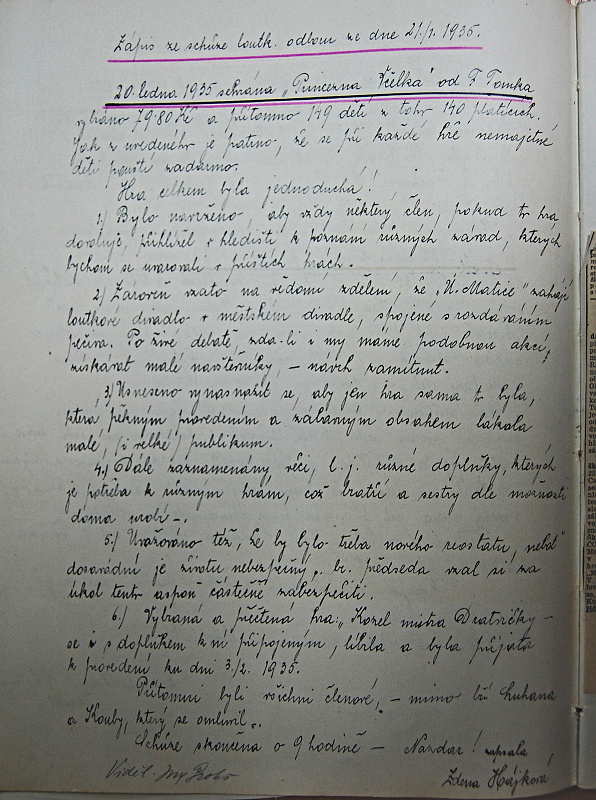 Zápis ze schůze loutk. odboru ze dne 21./1. 1935.
20. ledna 1935 sehrána „Princezna Včelka" od F. Tomka
vybráno 79·80 Kč a přítomno 149 dětí z toho 140 platících.
Jak z uvedeného je patrno, že se při každé hře nemajetné
děti pouští zadarmo.
Hra celkem byla jednoduchá!
1.) Bylo navrženo, aby vždy některý člen, pokud to hra
dovoluje, přihlížel v hledišti k poznání různých závad, kterých
bychom se uvarovali v příštích hrách.
2.) Zároveň vzato na vědomí zdělení, že „Ú. Matice" zahájí
loutkové divadlo v městském divadle, spojené s rozdáváním
pečiva. Po živé debatě, zda-li i my máme podobnou akcí,
získávat malé návštěvníky, – návrh zamítnut.
3.) Usneseno vynasnažit se, aby jen hra sama to byla,
která pěkným provedením a zábavným obsahem lákala
malé, (i velké) publikum.
4.) Dále zaznamenány věci, t. j. různé doplňky, kterých
je potřeba k různým hrám, což bratří a sestry dle možnosti
doma urobí –.
5.) Uvažováno též, že by bylo třeba nového reostatu, neboť
dosavádní je životu nebezpečný. br. předseda vzal si za
úkol tento aspoň částečně zabezpečiti.
6.) Vybraná a přečtená hra: „Kozel mistra Dratvičky –
se i s doplňkem k ní připojeným, líbila a byla přijata
k provedení ku dni 3./2. 1935.
Přítomni byli všichni členové, – mimo bří
a Kouby, který se omluvil –.
Schůze skončena o 9 hodině – Nazdar! zapsala
Viděl: Zdena Hájková